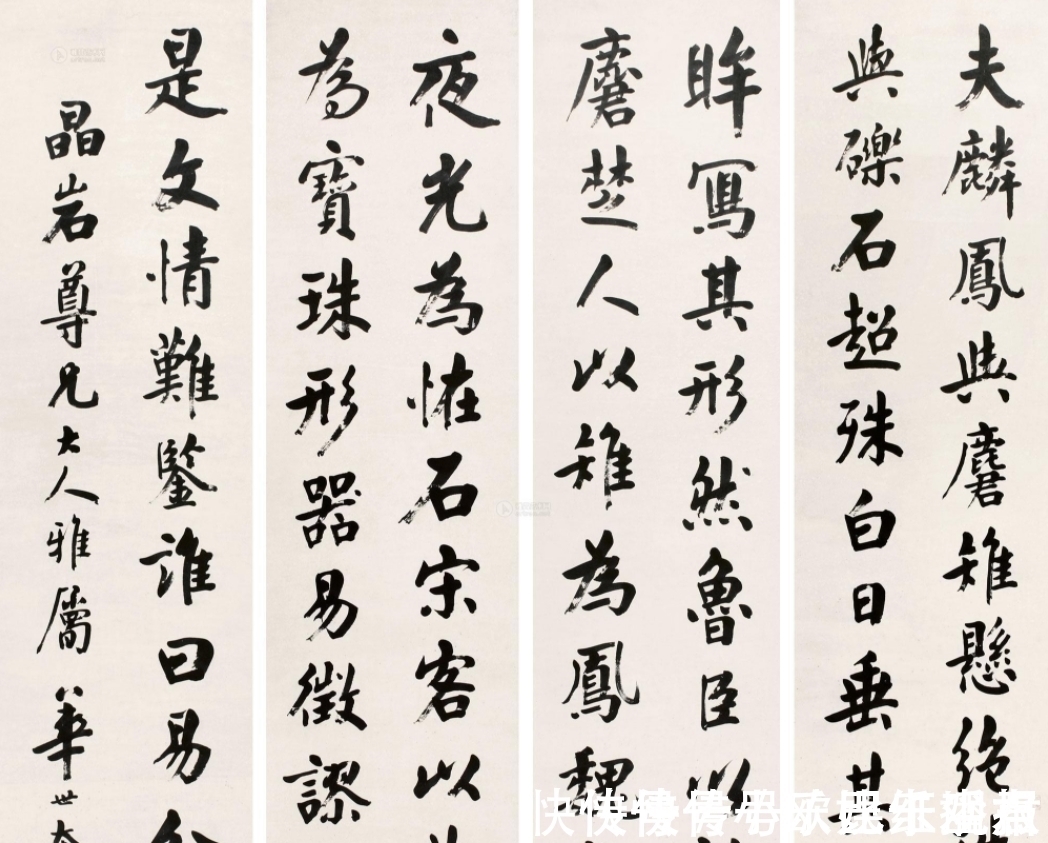 夫麟鳳與麏雉懸絕
與礫石超殊白日垂其
眸寫其形然魯臣以
麏楚人以雉為鳳魏
夜光為怪石宋客以
為寶珠形器易徵謬
是文情難鑒誰曰易分
晶岩尊兄大人雅屬 華世奎